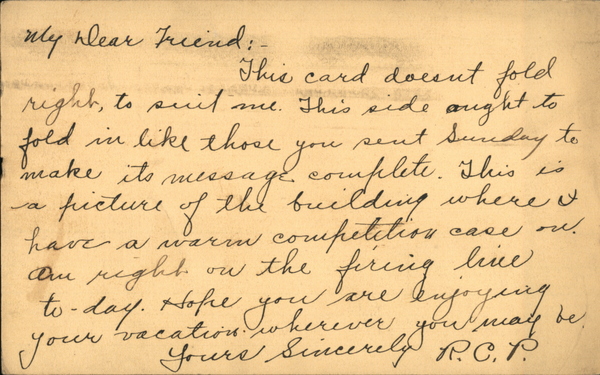 My Dear Friend:-
This card doesnt fold
right, to suit me. This side ought to
fold in like those you sent Sunday to
make its message complete. This is
a picture of the building where I
have a warm competition case on.
Am right on the firing line
to-day. Hope you are enjoying
your vacation wherever you may be.
Yours Sincerely R.C.P.